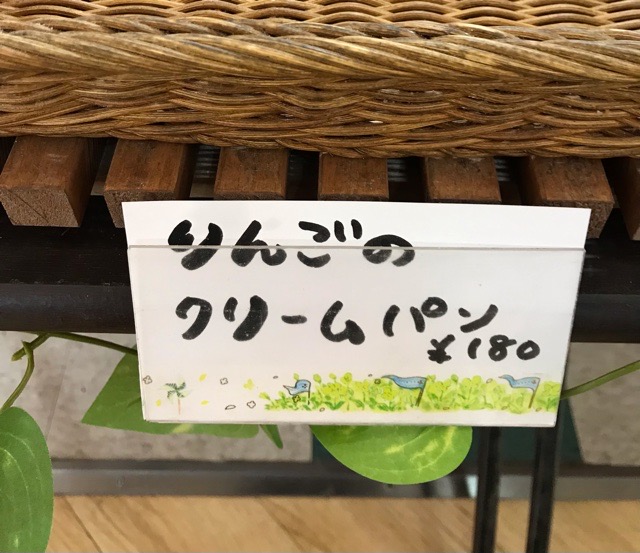 りんごの
クリームパン
¥180